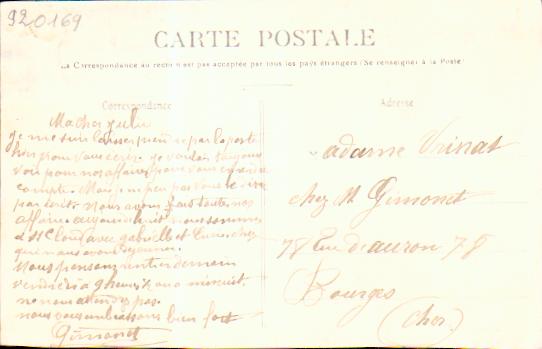 920169
CARTE POSTALE
La Correspondance au recto n'est pas acceptée par tous les pays étrangers (Se renseigner à la Poste)
Correspondance
Ma cher
je me suis laisser prendre par la poste
pour vous écrire je voulais toujours
voir pour nos affaires pour vous rendre
compte. Mais peu pas vous
par écrit. Nous avons fais toute nos
affaire. aujourd'huit nous sommes
a St Cloud avec gabrielle et chez
qui nous avons
Nous pensons rentrer demain
vendredi a 9 heures ou a minuit.
ne nous attendez pas.
nous vous embrassons bien fort
Gimonet
Adresse
Madame Vrinat
chez M Gimonet
78 Rue d'auron 78
Bourges
(Cher)